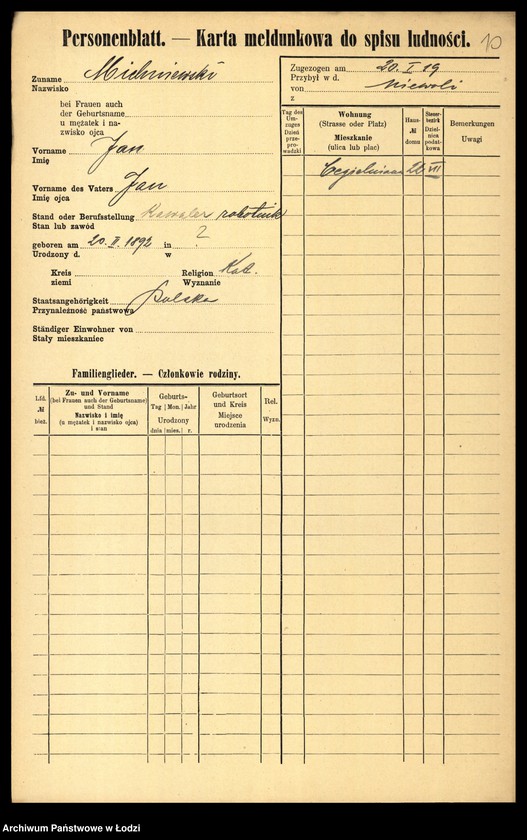 Personenblatt. — Karta meldunkowa do spisu ludności.
10
Zuname Michniewski
Nazwisko
bei Frauen auch
der Geburtsname
u mężatek i na-
zwisko ojca
Vorname Jan
Imię
Vorname des Vaters Jan
Imię ojca
Stand oder Berufsstellung Kawaler robotnik
Stan lub zawód
geboren am 20. II. 1892 in ?
Urodzony d. w
Kreis Religion Kat.
ziemi Wyznanie
Staatsangehörigkeit Polska
Przynależność państwowa
Ständiger Einwohner von
Stały mieszkaniec
Familienglieder. — Członkowie rodziny.
Lfd.
№
bież.
Zu- und Vorname
(bei Frauen auch der Geburtsname)
und Stand
Nazwisko i imię
(u mężatek i nazwisko ojca)
i stan
Geburts-
Tag Mon. Jahr
Urodzony
dnia mies. r.
Geburtsort
und Kreis
Miejsce
urodzenia
Rel.
Wyzn.
Zugezogen am 20. I. 19
Przybył w d.
von Niewoli
z
Tag des
Um-
zuges
Dzień
prze-
pro-
wadzki
Wohnung
(Strasse oder Platz)
Mieszkanie
(ulica lub plac)
Haus-
№
domu
Steuer-
bezirk
Dziel-
nica
podat-
kowa
Bemerkungen
Uwagi
Cegielniana VII
Archiwum Państwowe w Łodzi